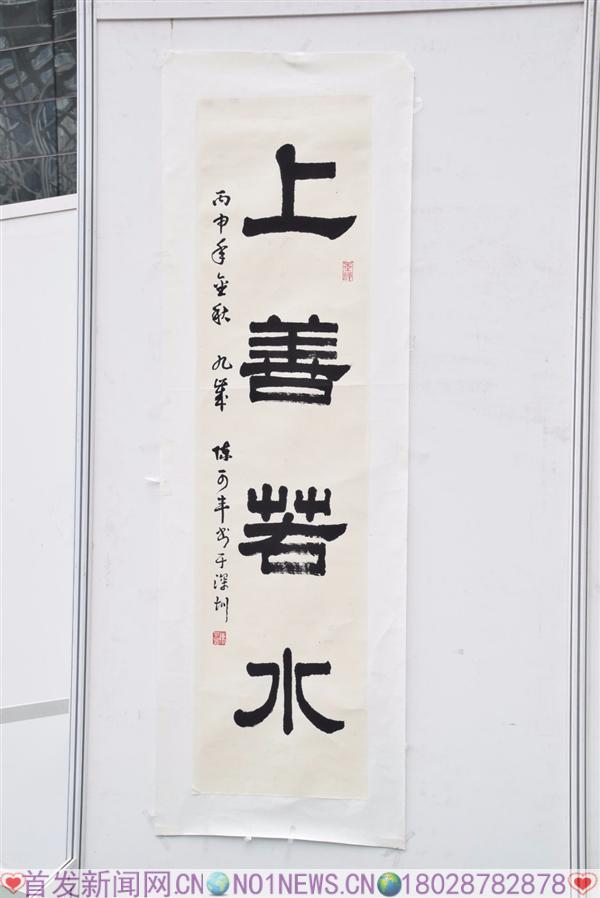 上善若水
丙申年金秋 九岁 陈可丰书于深圳
首发新闻网.CN NO1NEWS.CN 18028782878